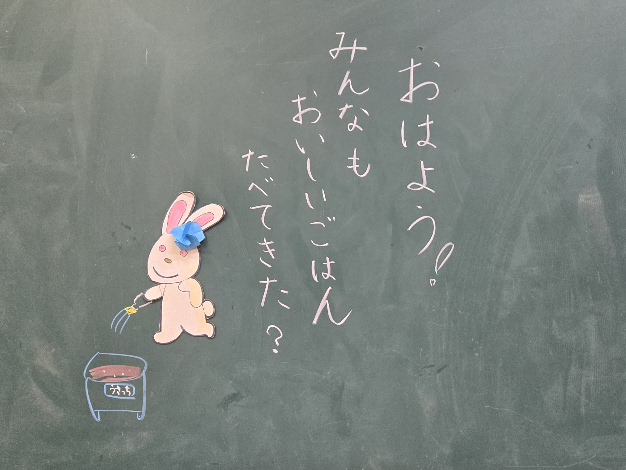 おはよう!
みんなも
おいしいごはん
たべてきた?
うさっち